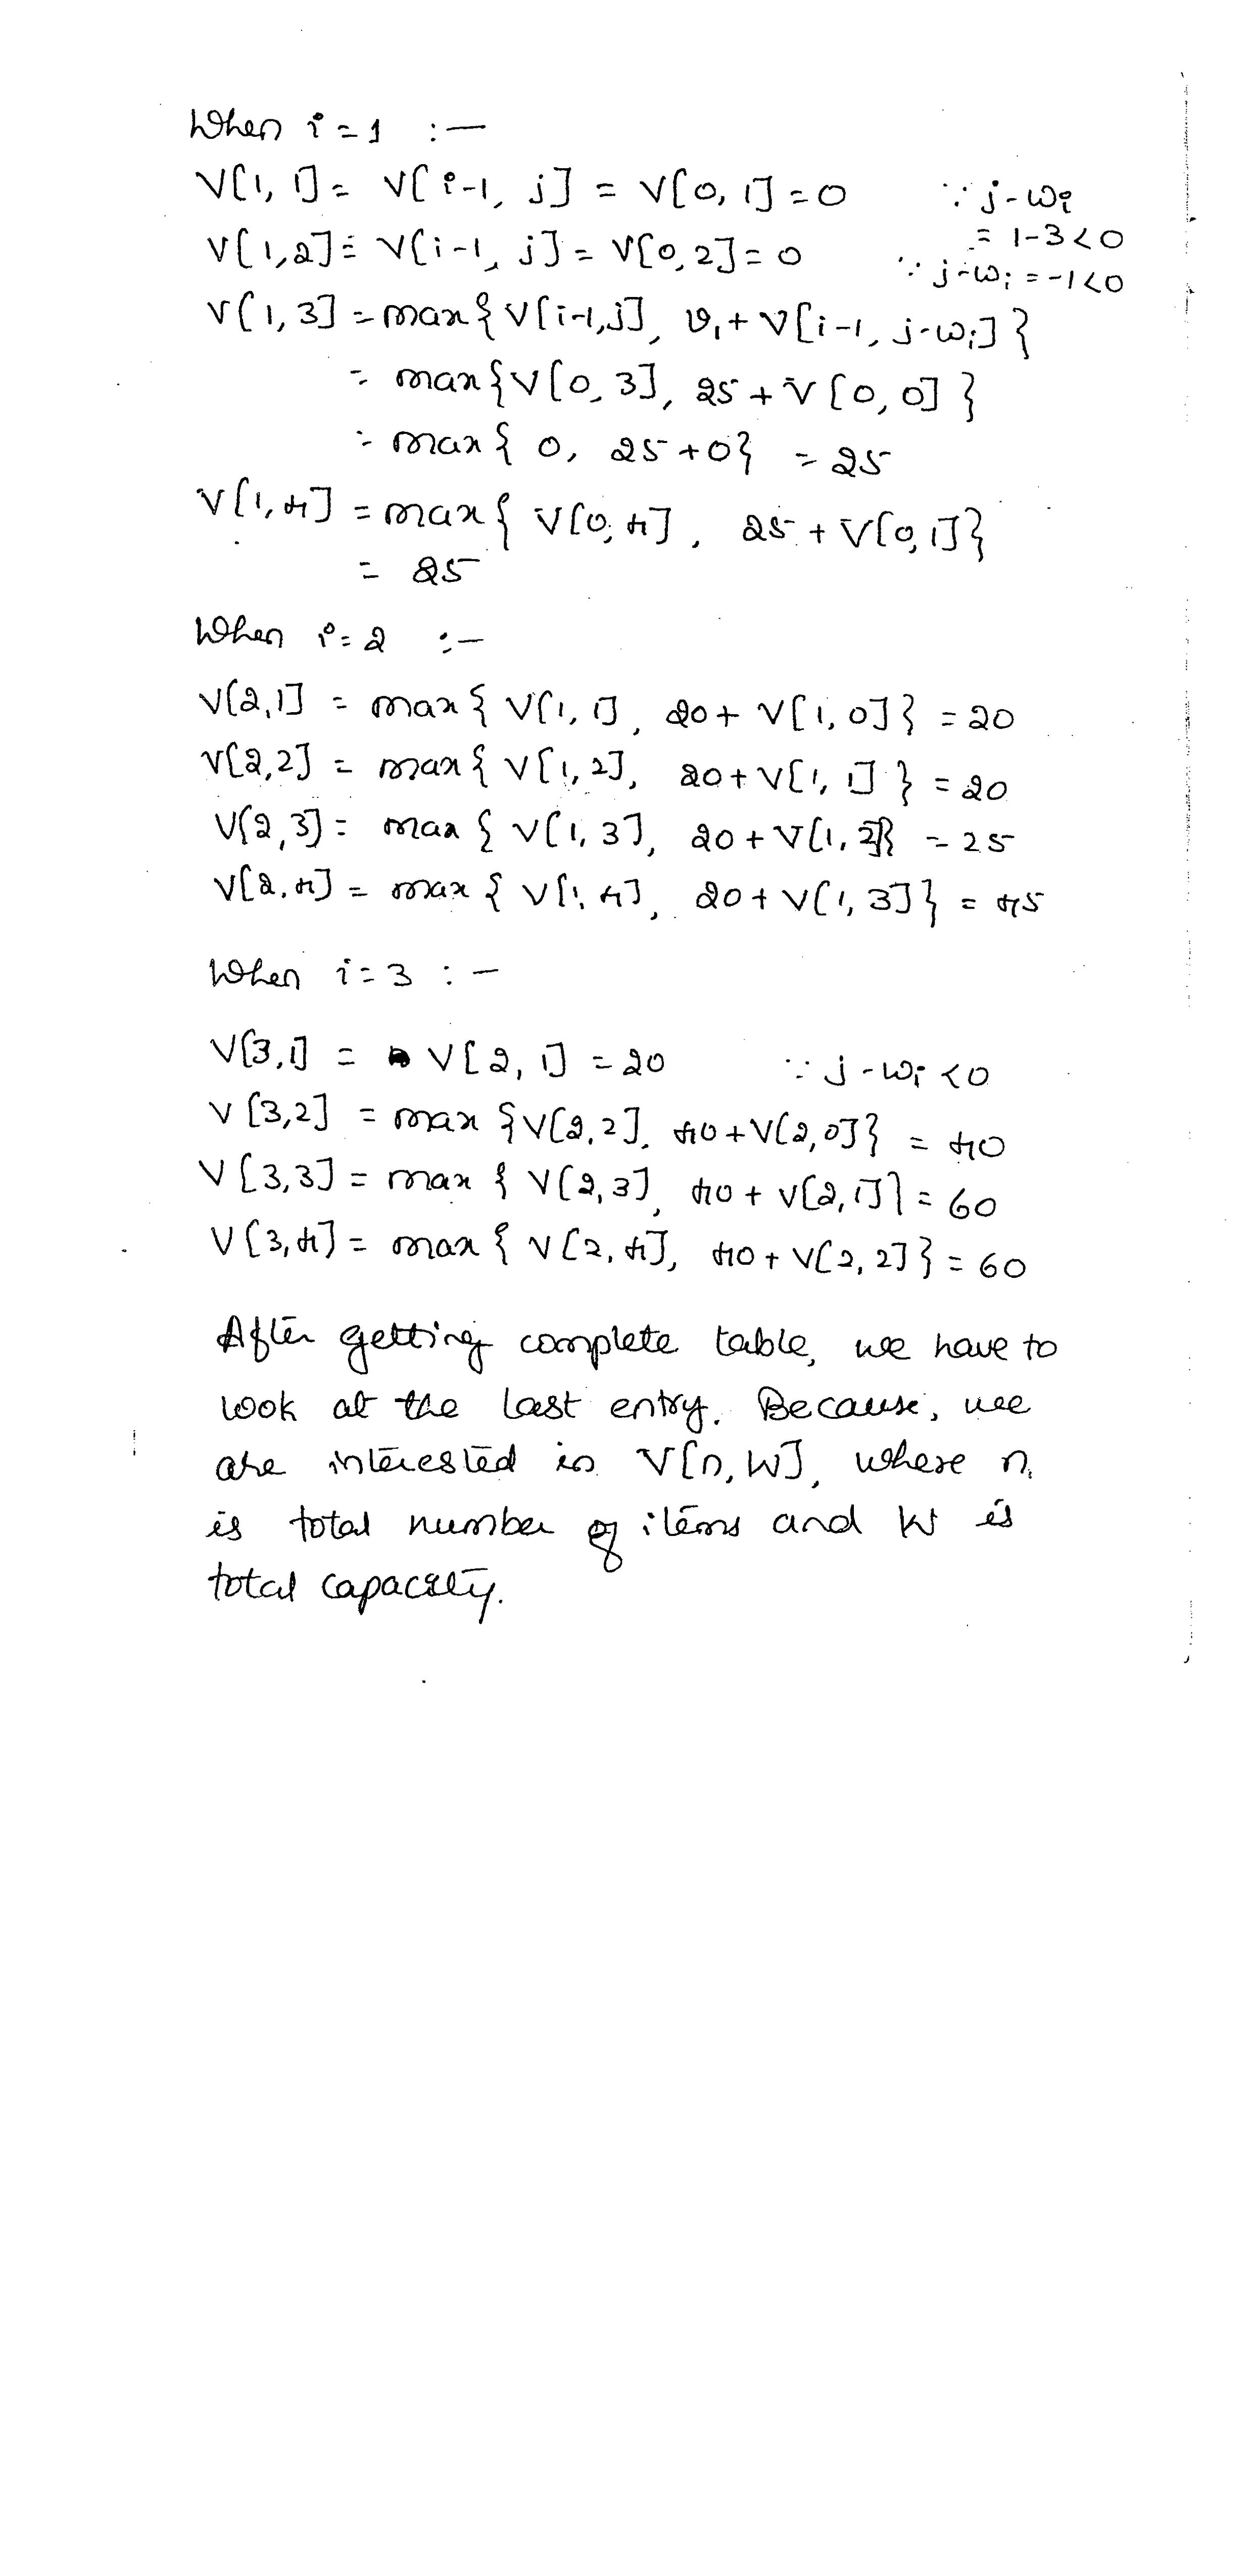 When i = 1 :—
V[1, 1] = V[i-1, j] = V[0, 1] = 0 ∵ j-wi
= 1-3<0
V[1,2] = V[i-1, j] = V[0,2] = 0 ∵ j-wi = -1<0
V[1, 3] = max{V[i-1,j], v1 + V[i-1, j-wi]}
= max{V[0, 3], 25 + V[0, 0]}
= max{ 0, 25+0} = 25
V[1,4] = max{ V[0,4], 25 + V[0,1]}
= 25
When i = 2 :—
V[2,1] = max{ V[1, 1], 20 + V[1, 0]} = 20
V[2,2] = max{ V[1, 2], 20 + V[1, 1] } = 20
V[2,3] = max { V[1, 3], 20 + V[1, 2]} = 25
V[2,4] = max { V[1, 4], 20 + V[1, 3]} = 45
When i = 3 :—
V[3,1] = V[2, 1] = 20 ∵ j-wi <0
V[3,2] = max {V[2,2], 40 + V[2,0]} = 40
V[3,3] = max { V[2,3], 40 + V[2,1]} = 60
V[3,4] = max { V[2,4], 40 + V[2, 2]} = 60
After getting complete table, we have to
look at the last entry. Because, we
are interested in V[n,W], where n
is total number of items and W is
total capacity.